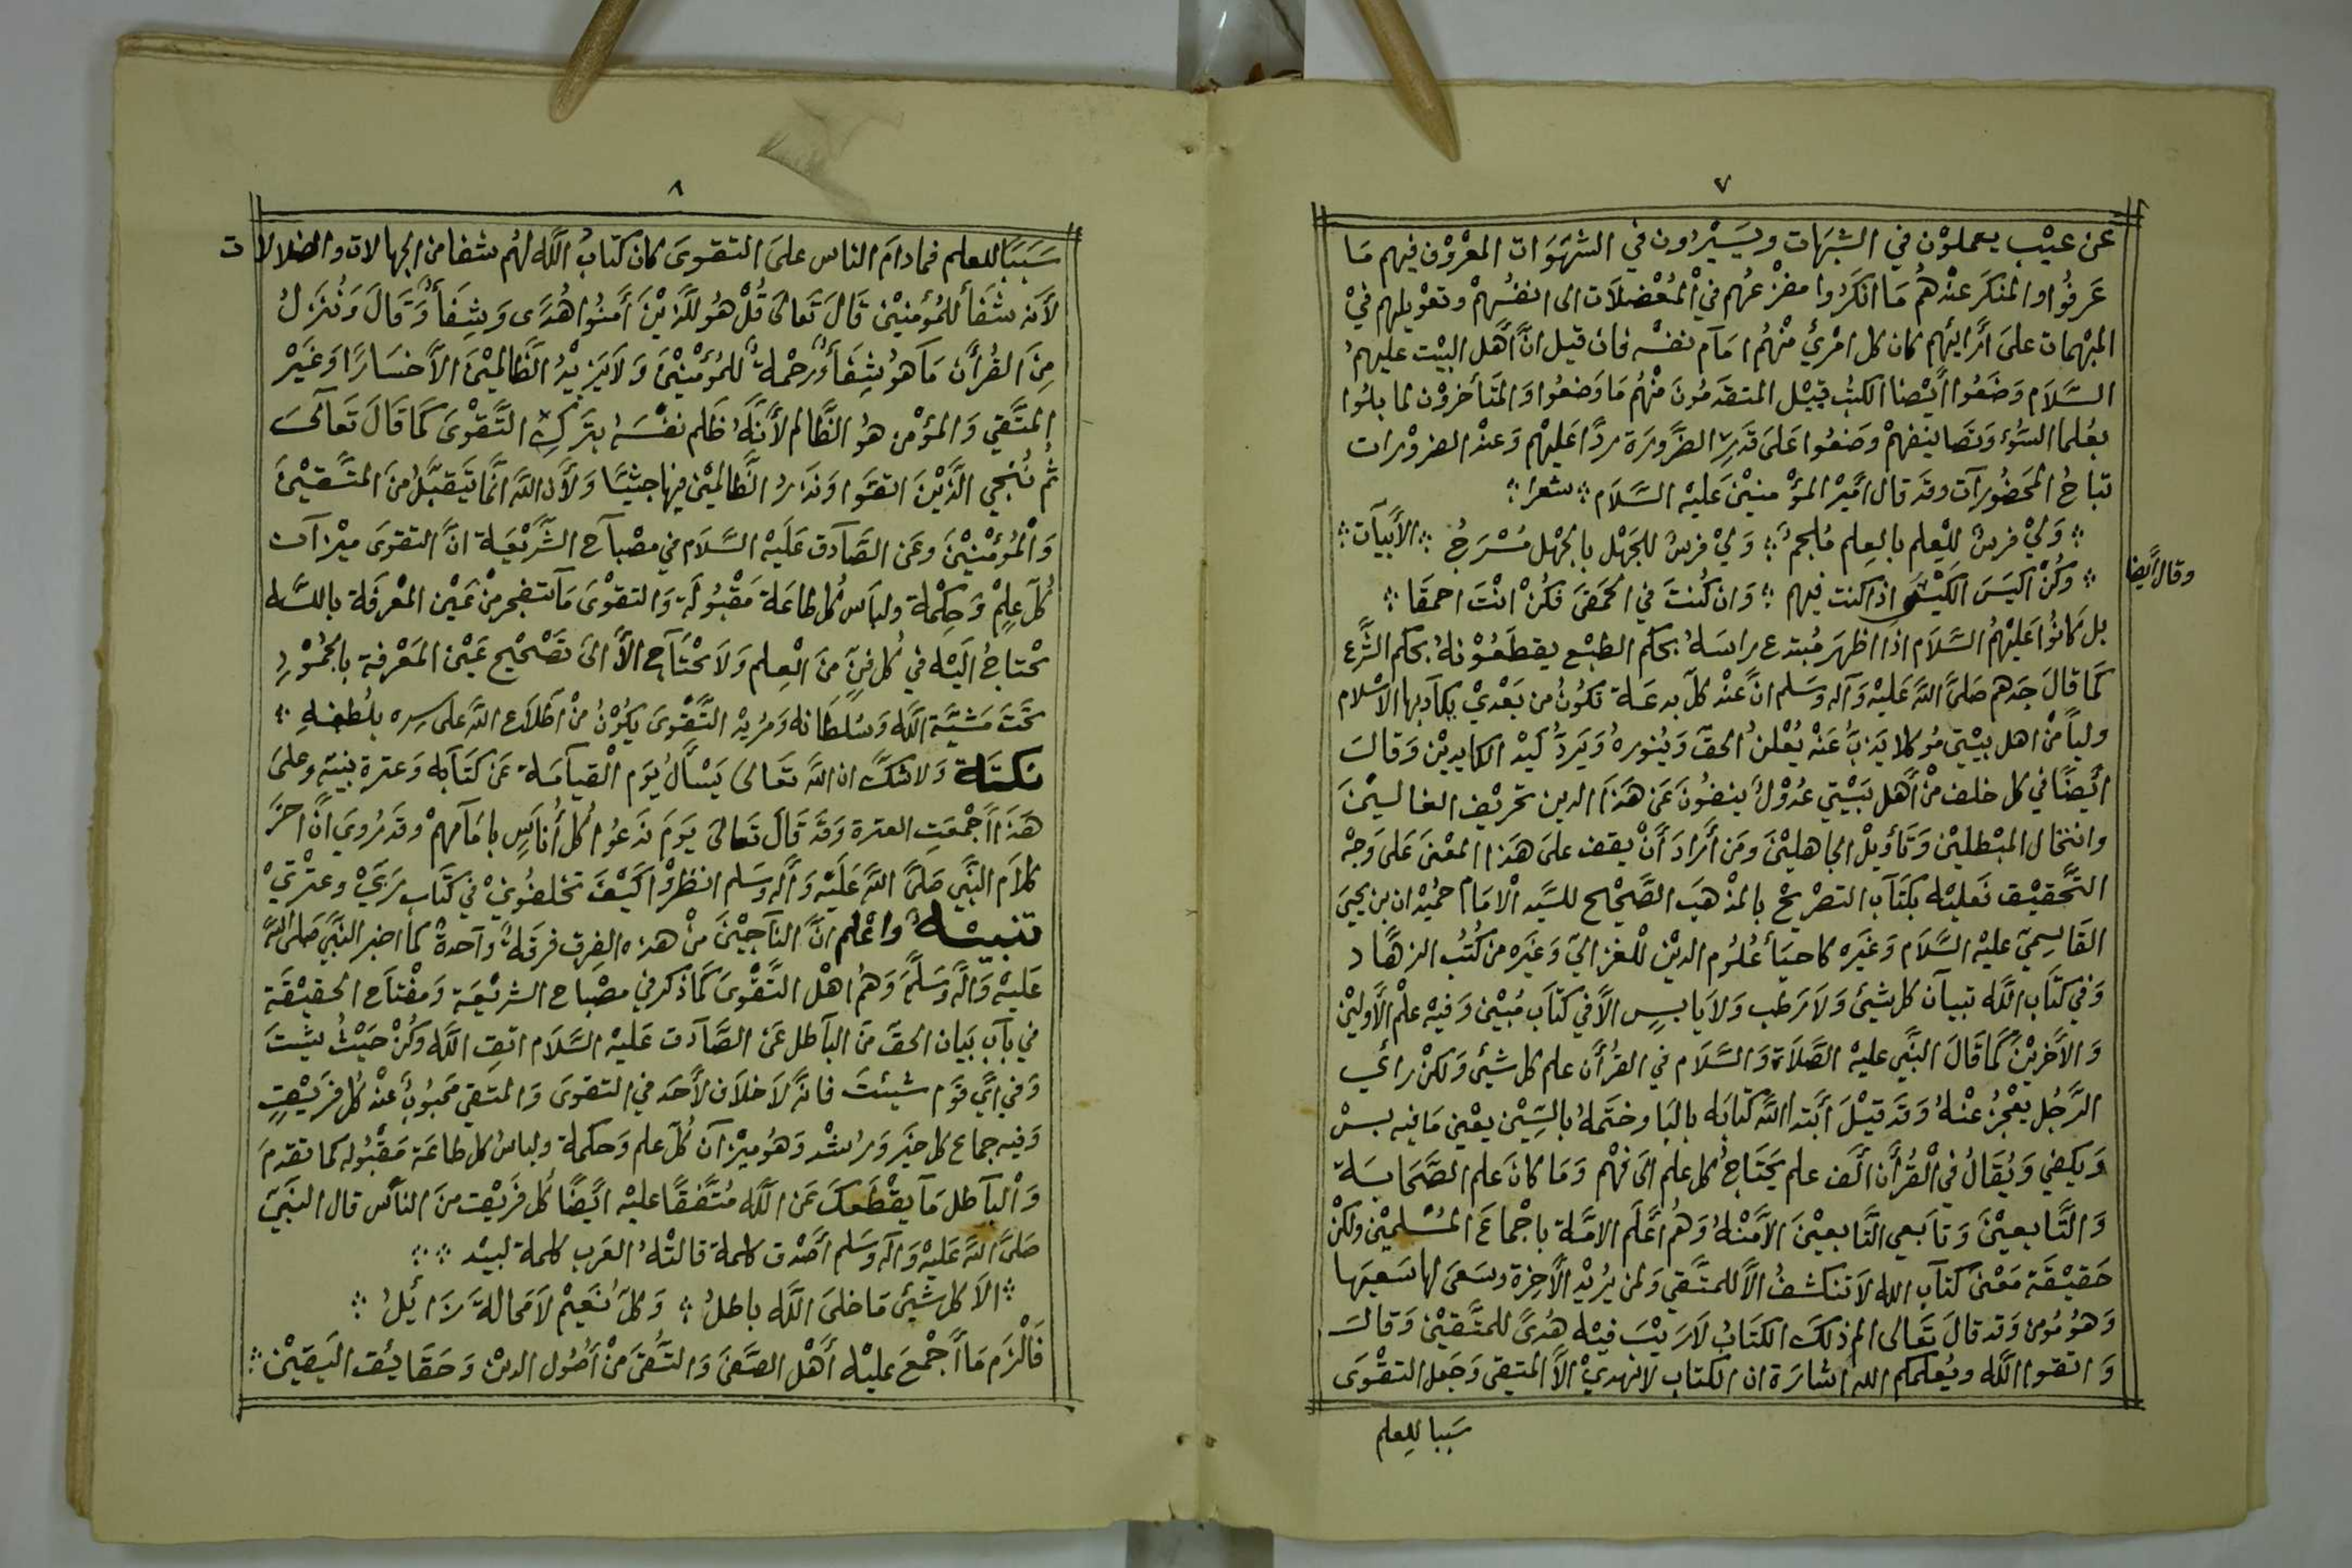 ٧
عَن عيْبٍ يعملوْن في الشبهَات ويَسيْرُون في الشهَوَات المعْرُوْف فيهم مَا
عَرفُوا والمنكَر عنْدهُم مَا انكَرُوا مفزْعُهم في الْمُعْضلاَت الى انفسُهمْ وتعْويلهم فيْ
المبْهمات علىَ أرَائِهم كان كل امْرئٍ منْهُم امَآم نفسْه فان قيل انَّ أهَل البيْت عليهمُ
السَّلاَم وَضَعُوا اَيْضا الكتبُ قيْل المتقدّمُونَ منْهُم مَا وَضعُوا وَالمتَأخرُوْن لما بلُوا
بعُلما السّوُء وَتصَانيفهمْ وضَعُوا عَلىَ قدَرِ الضرُورَة ردًّا عَليْهم وَعندْ الضروْرات
تباحُ المحَضُورآت وقدْ قال امَيْر المؤْمنيْن عَليهْ السَّلاَم ؞ شعرا ؞
؞ وَليْ فرسٌ للِعْلم بالعِلم مُلجمٌ ؞ وَليْ فرسٌ للجَهْل بالجهْل مُسْرَجُ ؞ الأبيَآت ؞
وقال أيضا
؞ وَكنْ اكيَسَ الكَيْسَى اذا كنت فيهم ؞ وَان كُنتَ في الحَمقىَ فكُنْ انْتَ احمقَا ؞
بل كَانوُا عَليْهمُ السَّلاَم اذا اظهَرَ مُبْتدع راسَهُ بحكم الطبْع يقطَعُوْنهُ بحكم الشَّرع
كمَا قالَ جدَهم صَلىَّ اللهَ عَليْه وَآله وسَلم انَّ عنْد كلّ بدعَة تكُونُ من بَعْديْ يكاَد بها الاسْلام
وليًّا منْ اهل بيْتي مُوكلا يَذبُّ عَنْه يُعْلنُ الحقّ وَينُورهُ وَيَردُّ كيْد الكايديْن وَقالَ
أيضًا في كل خلف منْ أهَل بَيْتي عُدُوْلٌ ينفوُنَ عَن هَذَا الدين تحريْف الغاليْنَ
وانتحال المبْطليْن وَتأويْل الجاهليْنَ ومَن أرَادَ أنْ يقف علىَ هَذا المعْنىَ عَلى وَجْه
التَّحقيْق فَعليْه بكتَآب التصْريحْ بالمذْهبَ الصَّحيْح للسَّيد الاْمَام حُميْدان بن يحيىَ
القَاسِميّ عليْه السَّلام وَغيَره كاحيَأ عُلوُم الديْن للْغزاليّ وَغيَره من كُتُب الزهَّاد
وَفي كتَاب اللَّه تبيآن كل شيئ وَلاَ رَطب وَلاَ يابسٍ الاَّ في كتاَب مُبيْن وَفيهْ علْم الأولينْ
وَالأخريْن كمَا قَالَ النبَّي عليهْ الصَّلاَة وَالسَّلاَم في القرُأن علم كل شيئ وَلكنْ رائي
الرَّجُل يعْجزُ عنْهُ وَقدَ قيْلَ أبَتدا اللَّه كتابَه بالبَا وختَمهُ بالسِّيْن يعْني مَا فيه بسْ
وَيكفي وَيُقَالُ في الْقُرأَن ألَف علم يحَتَاجُ كل علم الىَ فهْم وَمَا كانَ علم الصَّحَابَة
وَالتَّابعيْنَ وَتَابعي التَّابعيْنَ الاَّ منْهُ وَهُم أعَلَم الامَّة باجْماعَ المسُلميْن ولكنْ
حَقيْقَة مَعْنىَ كتاَب الله لاَ تنكشفُ الاَّ للمتَّقي وَلمن يُريْد الأَخِرةَ وسَعىَ لها سَعيَها
وَهُو مُؤمن وَقد قالَ تَعَالى الم ذلكَ الكتَابُ لاَ رَيْبَ فيْه هُدىً للمتَّقيْن وَقالَ
وَاتقوا اللَّه ويُعلمكم الله اشارَة ان الكتاب لا يهديْ الاَّ المتقي وَجَعل التقْوَى
سَببا للعلم
٨
سَبَبًا للعلم فمادامَ الناس علىَ التقوىَ كان كتابُ اللَّه لهُم شفا من الجهالات والضلالات
لأنه شفَأ للمُؤمنيْن قَالَ تَعَالىَ قُلْ هوُ للَّذيْنَ أمَنُوا هُدَى وَشِفَأٌ وَقَالَ وَنُنَزلُ
مِنَ القُرأن مَا هوُ شِفَأٌ وَرحْمةٌ للمُؤمْنيْنَ وَلاَ يَزيدُ الظَّالميْنَ الاَّ خسَارًا وَغَيْر
المتَّقي وَالمؤْمن هوُ الظَّالم لأنَّهُ ظَلم نفْسَهُ بتركِ التَّقوْىَ كمَا قَالَ تعَآلىَ
ثُم نُنْجي الَّذيْنَ اتقَوا وَنذَرُ الظَّالميْن فيها جثيًّا وَلأَن اللَّه انَّما يَتَقبَّلُ منَ المتَّقيْنَ
وَالْمُؤمْنيْنَ وعَن الصَّآدق عَليَهْ السَّلاَم في مصْبآح الشَّريْعَة انَّ التقوىَ ميْزآن
كُلّ عِلمْ وَحِكْمة ولبَاس كُل طاعَة مَقْبُولَة وَالتقوْىَ مَآ تنفجر منْ عَيْن المعْرفَة باللَّه
تحْتاجُ اليَهْ في كُل فنٍّ منَ الْعِلم وَلاَ تحْتَآج الاَّ الىَ تصَحْيح عَيْن المَعْرفة بالخمُوْدِ
تحَتَ مَشيَّة اللَّه وَسُلطَانه وَمزيْد التَّقْوىَ يكوُنُ منْ اطلاَع اللَّه على سِره بلُطْفِه ؞
نكتة وَلا شكَّ ان اللهَّ تَعَالىَ يَسْألُ يَوَم الْقيآمَة عَن كتَآبه وَعترة نبيّه وعلىَ
هَذَا أجْمعَتِ العترة وَقدَ قَالَ تَعالىَ يَومَ نَدعُوا كُل أُنَاسٍ بامَآمهمْ وقدَ رُويَ انَّ اخرَ
كلامَ النبَّي صَلىَّ اللهَّ عَليْه وَأَله وسَلم انظرُوْا كَيْفَ تخلفُونيْ في كتَاب ربَيْ وعترْتيْ
تنبيْهٌ واعْلم انَّ النآجيْنَ منْ هذه الفِرق فرقَةٌ وَآحدةٌ كما اخبر النبَّيَ صَلى اللَّه
عَليْهْ وَأَله وَسَلَّمَ وَهُم اهْل التَّقْوىَ كمَا ذكر في مصْباح الشريْعَة وَمفْتاَح الحَقيْقَة
في بآبِ بَيَان الحقَّ منَ البآطل عَن الصَّآدق عَليهْ السَّلاَم اتقِ اللَّه وَكُنْ حَيْثُ شئتَ
وَفي أيَّ قوَم شيئتَ فانهَّ لاَ خلاَف لأَحَد في التقوىَ وَالمتقي مَحبُوبٌ عنْد كُل فرَيْقٍ
وَفيه جماع كل خيَر وَرُشْد وَهُو ميْزآن كُلّ علم وَحكمة ولباسُ كل طاعَة مَقْبُوله كما تقدمَ
وَالْبآطل مَا يقْطَعكَ عَن اللَّه مُتَّفقًا عليْه ايَضًا كُل فَريْق منَ النأس قال النبَّيَ
صَلىَّ اللهَ عَليهْ وَآله وسَلم أصَدْق كلمة قالتْهُ العَرب كلمة لبيْد ؞ ؞
؞ الاَ كل شيئ مَا خلىَ اللَّه باطلُ ؞ وَكلّ نُعَيْم لاَ مَحالةَ زَائلُ ؞
فَالْزَم مَا أجْمْعَ عليْه أَهْل الصّفَىَ وَالتُّقىَ منْ أصُول الديْن وَحَقَايئق اليَقيْن ؞